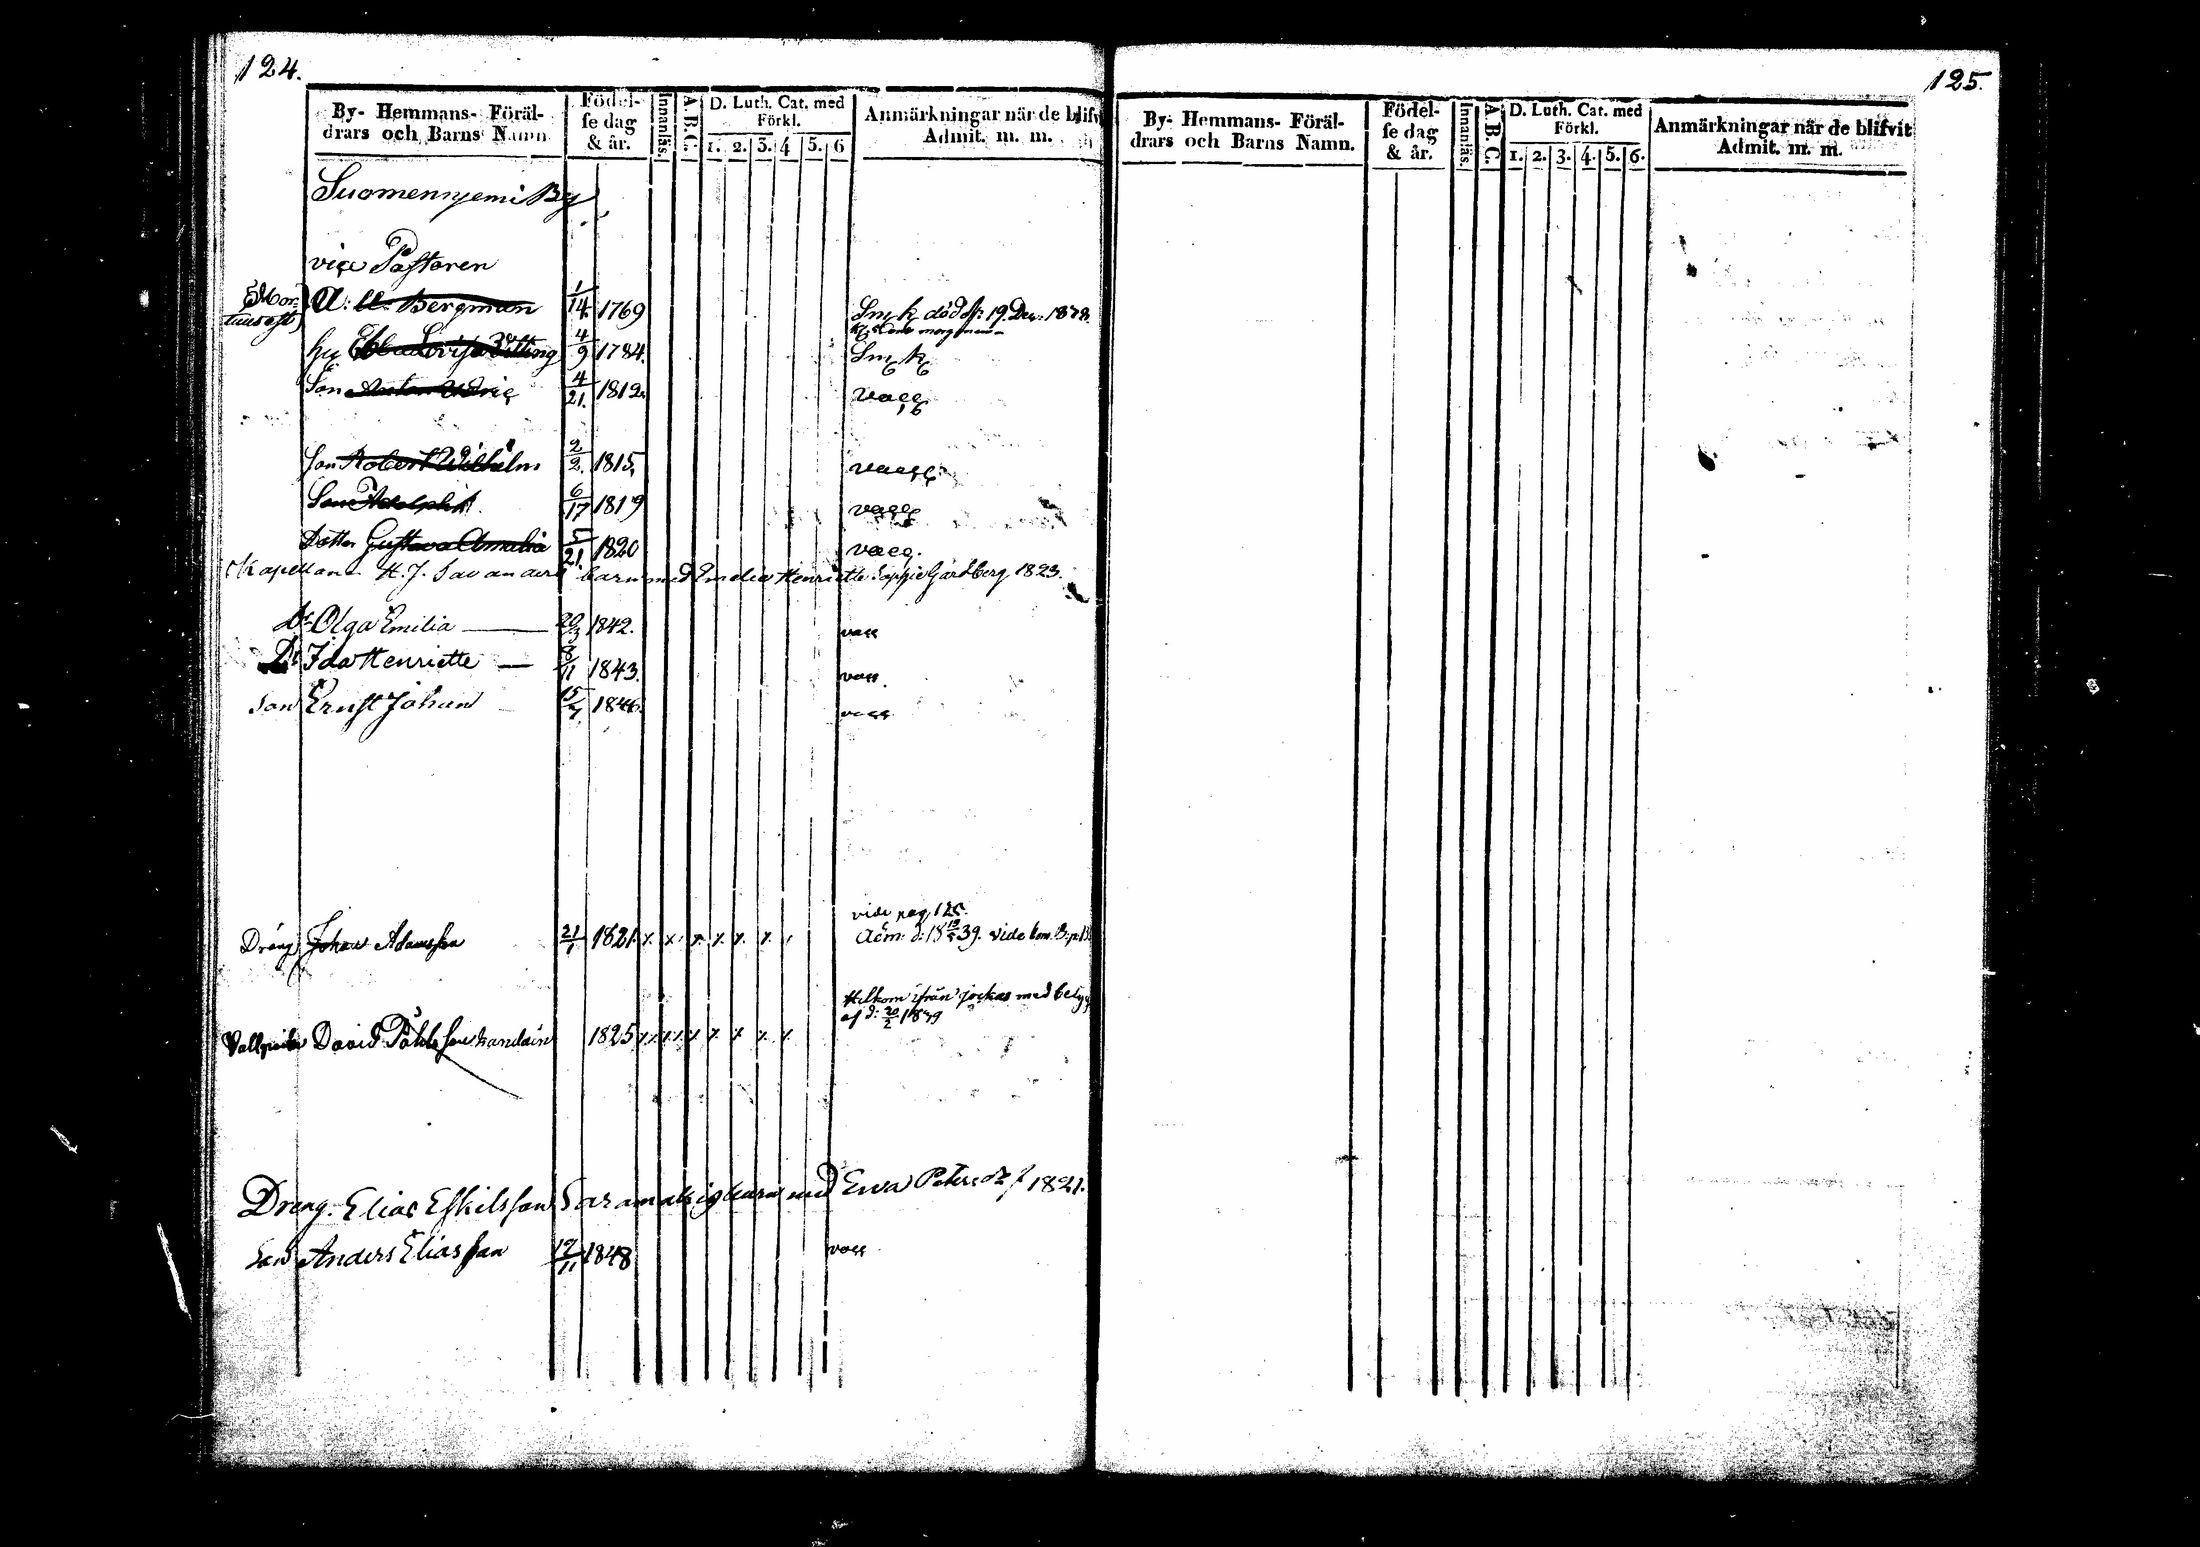 124.
By- Hemmans- Föräl-
drars och Barns Namn
Födel-
se dag
& år.
Innanläs.
A. B. C.
D. Luth. Cat. med
Förkl.
1. 2. 3. 4 5. 6
Anmärkningar när de blifvit
Admit. m. m.
Suomenniemi By
vice Pastoren
A: U. Bergman 1/14. 1769 Smk död d: 19. Dec: 1828.
hu Ebba Lovisa 4/9 1784. Smk
Son Anton Udric 4/21. 1812. vacc
Son Robert Wilhelm 2/2. 1815, vacc
Son Adolph 6/17 1819 vacc
Dotter Gustava Amalia 5/21. 1820 vacc.
Kapellan H. J. Savanders barn med Emelia Henriette Sophie Gardberg 1823.
Dr Olga Emilia 20/3 1842. vacc
Dr Ida Henriette 8/11 1843. vacc.
Son Ernst Johan 15/7 1846. vacc
vide pag 125.
Dräng Johan Adamsson 21/1 1821. x x x x x x Adm: d: 18 39. vide
Hitkom ifrån Jockas med betyg
af d: 20/2 1839
David Påhlsson 1825 x x x x x x x x
Dreng. Elias Eskilsson barn med Ewa Petersdr f 1821.
Son Anders Eliasson 19/11 1848 vacc
125.
By- Hemmans- Föräl-
drars och Barns Namn.
Födel-
se dag
& år.
Innanläs.
A. B. C.
D. Luth. Cat. med
Förkl.
1. 2. 3. 4. 5. 6.
Anmärkningar när de blifvit
Admit. m. m.